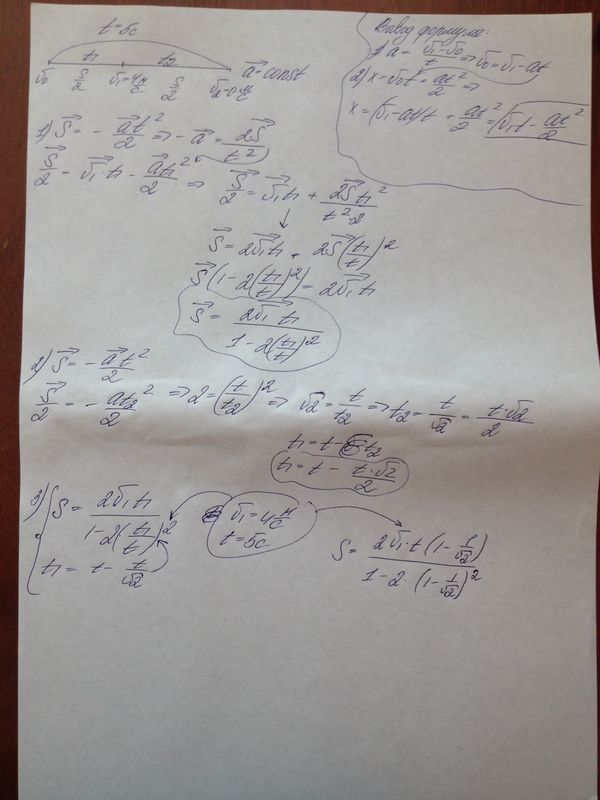 t=5c
t₁ t₂
S/2 S/2
v₀ v₁=4 м/с v₂=0 м/с a⃗=const
Вывод формулы:
1) a = (v₁-v₀)/t ⇒ v₀=v₁-at
2) x=v₀t+at²/2 ⇒
x=(v₁-at)t + at²/2 = v₁t - at²/2
1) S⃗ = - a⃗t²/2 ⇒ -a⃗ = 2S⃗/t²
S⃗/2 = v⃗₁·t₁ - a⃗t₁²/2 ⇒ S⃗/2 = v⃗₁t₁ + 2S⃗t₁²/(t²·2)
S⃗ = 2v⃗₁t₁ + 2S⃗(t₁/t)²
S⃗(1-2(t₁/t)²) = 2v⃗₁t₁
S⃗ = 2v⃗₁t₁/(1-2(t₁/t)²)
2) S⃗ = - a⃗t²/2
S⃗/2 = - a⃗t₂²/2 ⇒ 2=(t/t₂)² ⇒ √2 = t/t₂ ⇒ t₂ = t/√2 = t·√2/2
t₁=t-t₂
t₁=t - t·√2/2
3) S = 2v₁t₁/(1-2(t₁/t)²)
t₁ = t - t/√2
v₁=4 м/с
t=5c
S = 2v₁·t(1-1/√2)/(1-2·(1-1/√2)²)